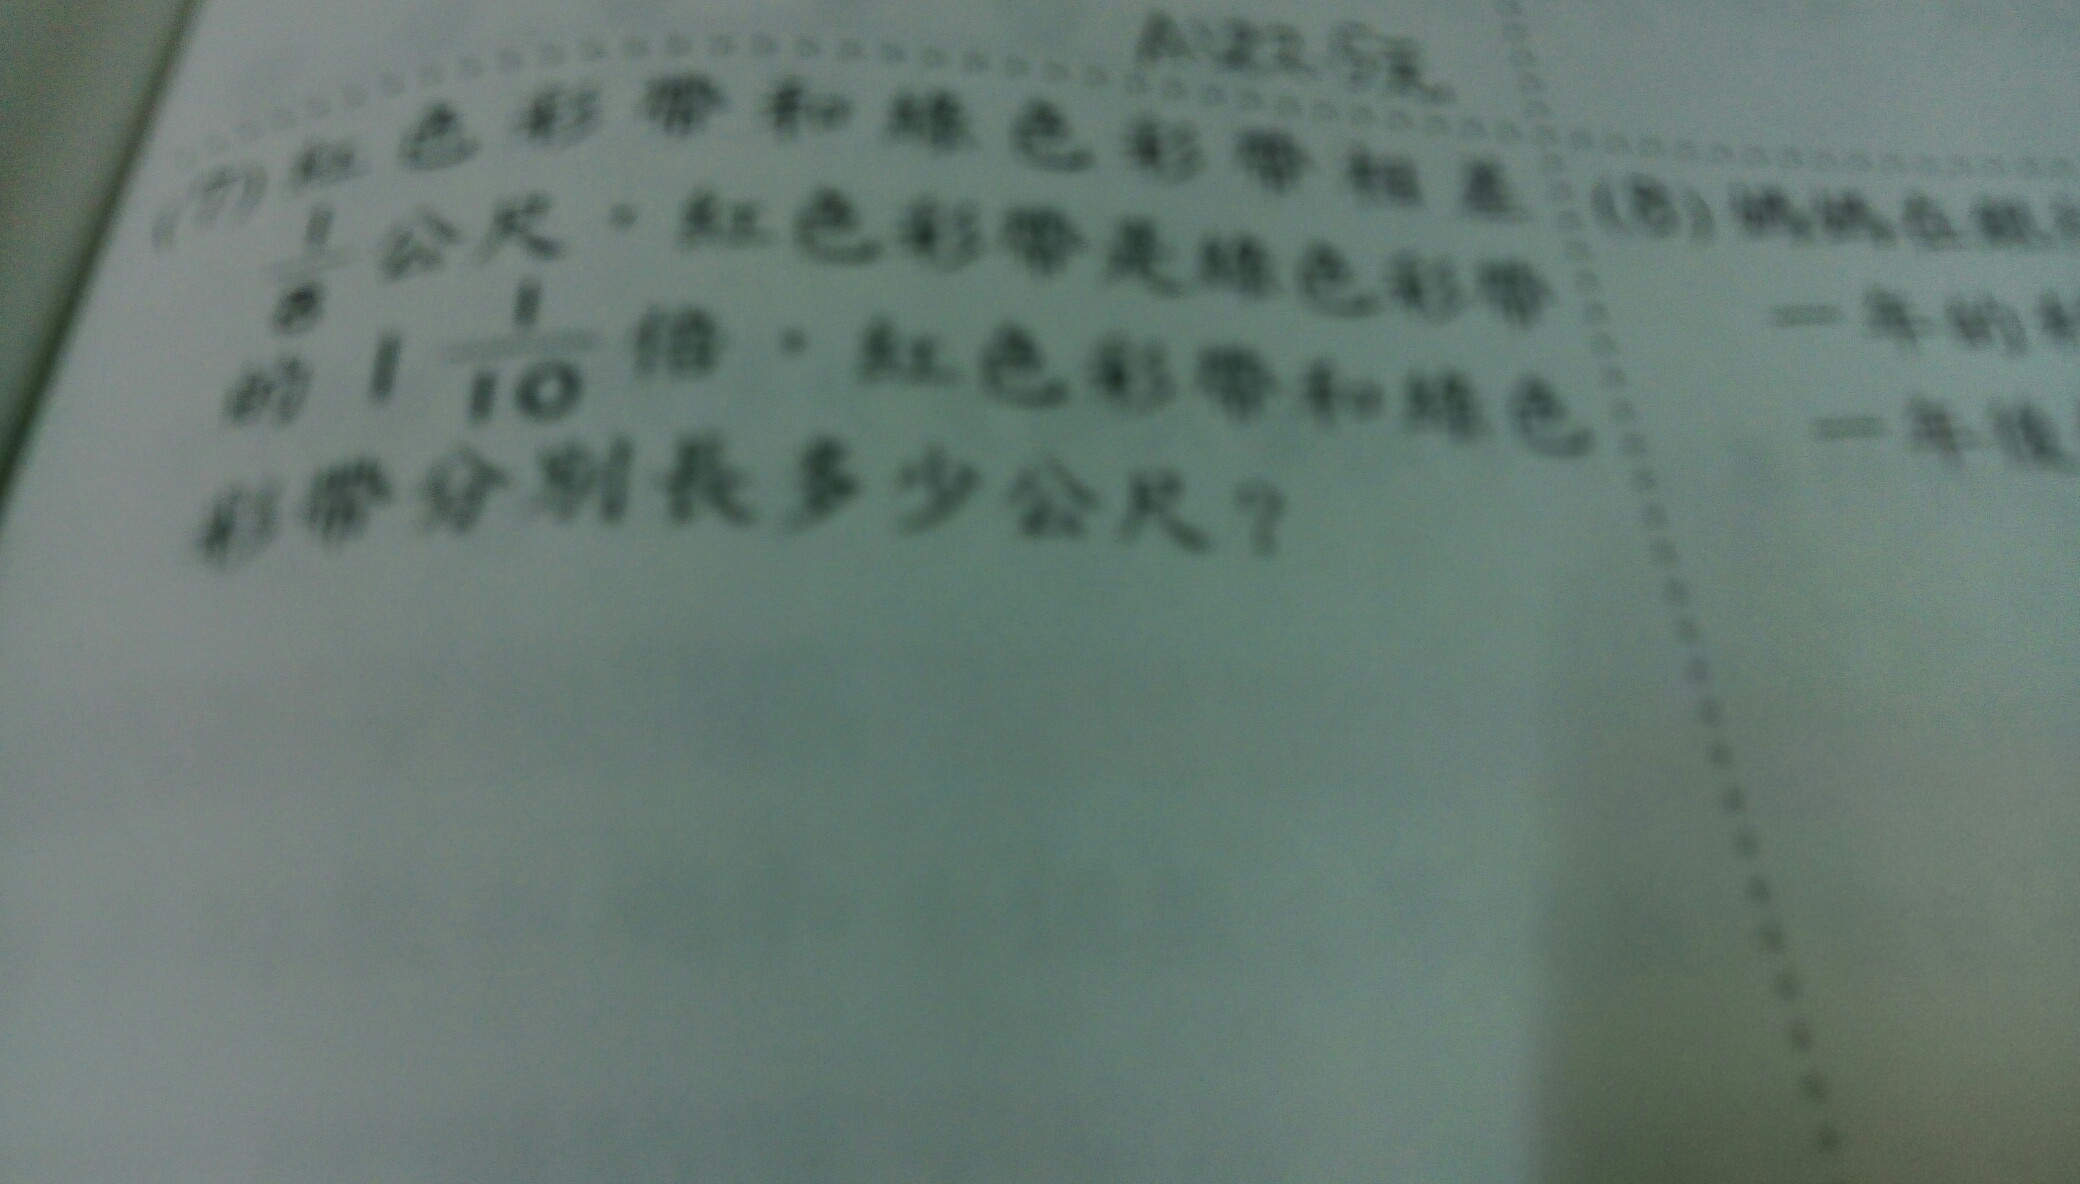 (7) 紅色彩帶和綠色彩帶相差
1/8 公尺，紅色彩帶是綠色彩帶
的 1 1/10 倍，紅色彩帶和綠色
彩帶分別長多少公尺？
(8) 媽媽在銀
一年的
一年後